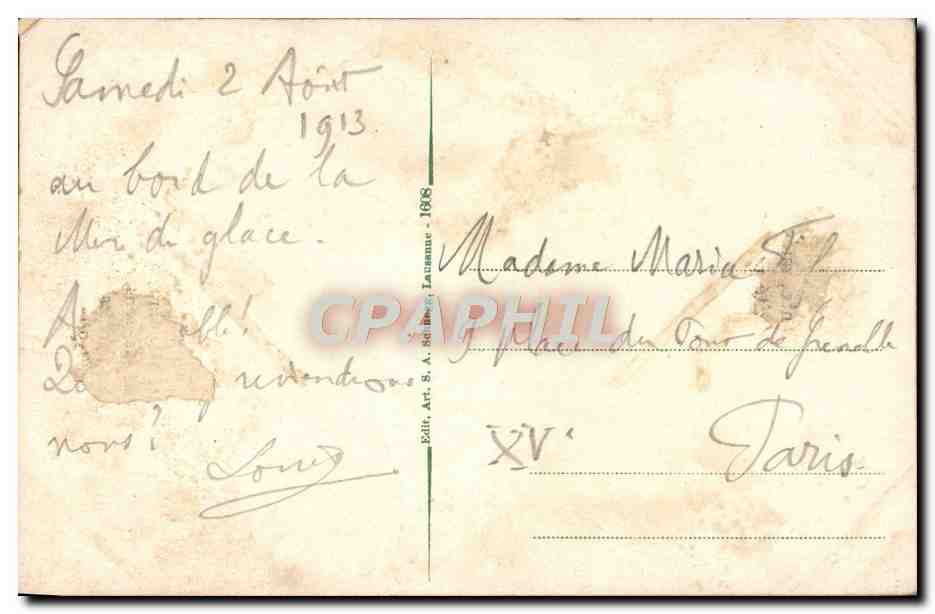 Samedi 2 Août
1913
au bord de la
Mer de glace.
reviendrons
nous?
Louis
Edit. Art. S. A. Lausanne - 1608
Madame Maria
Place du Four de Grenelle
XVe
Paris
CPAPHIL